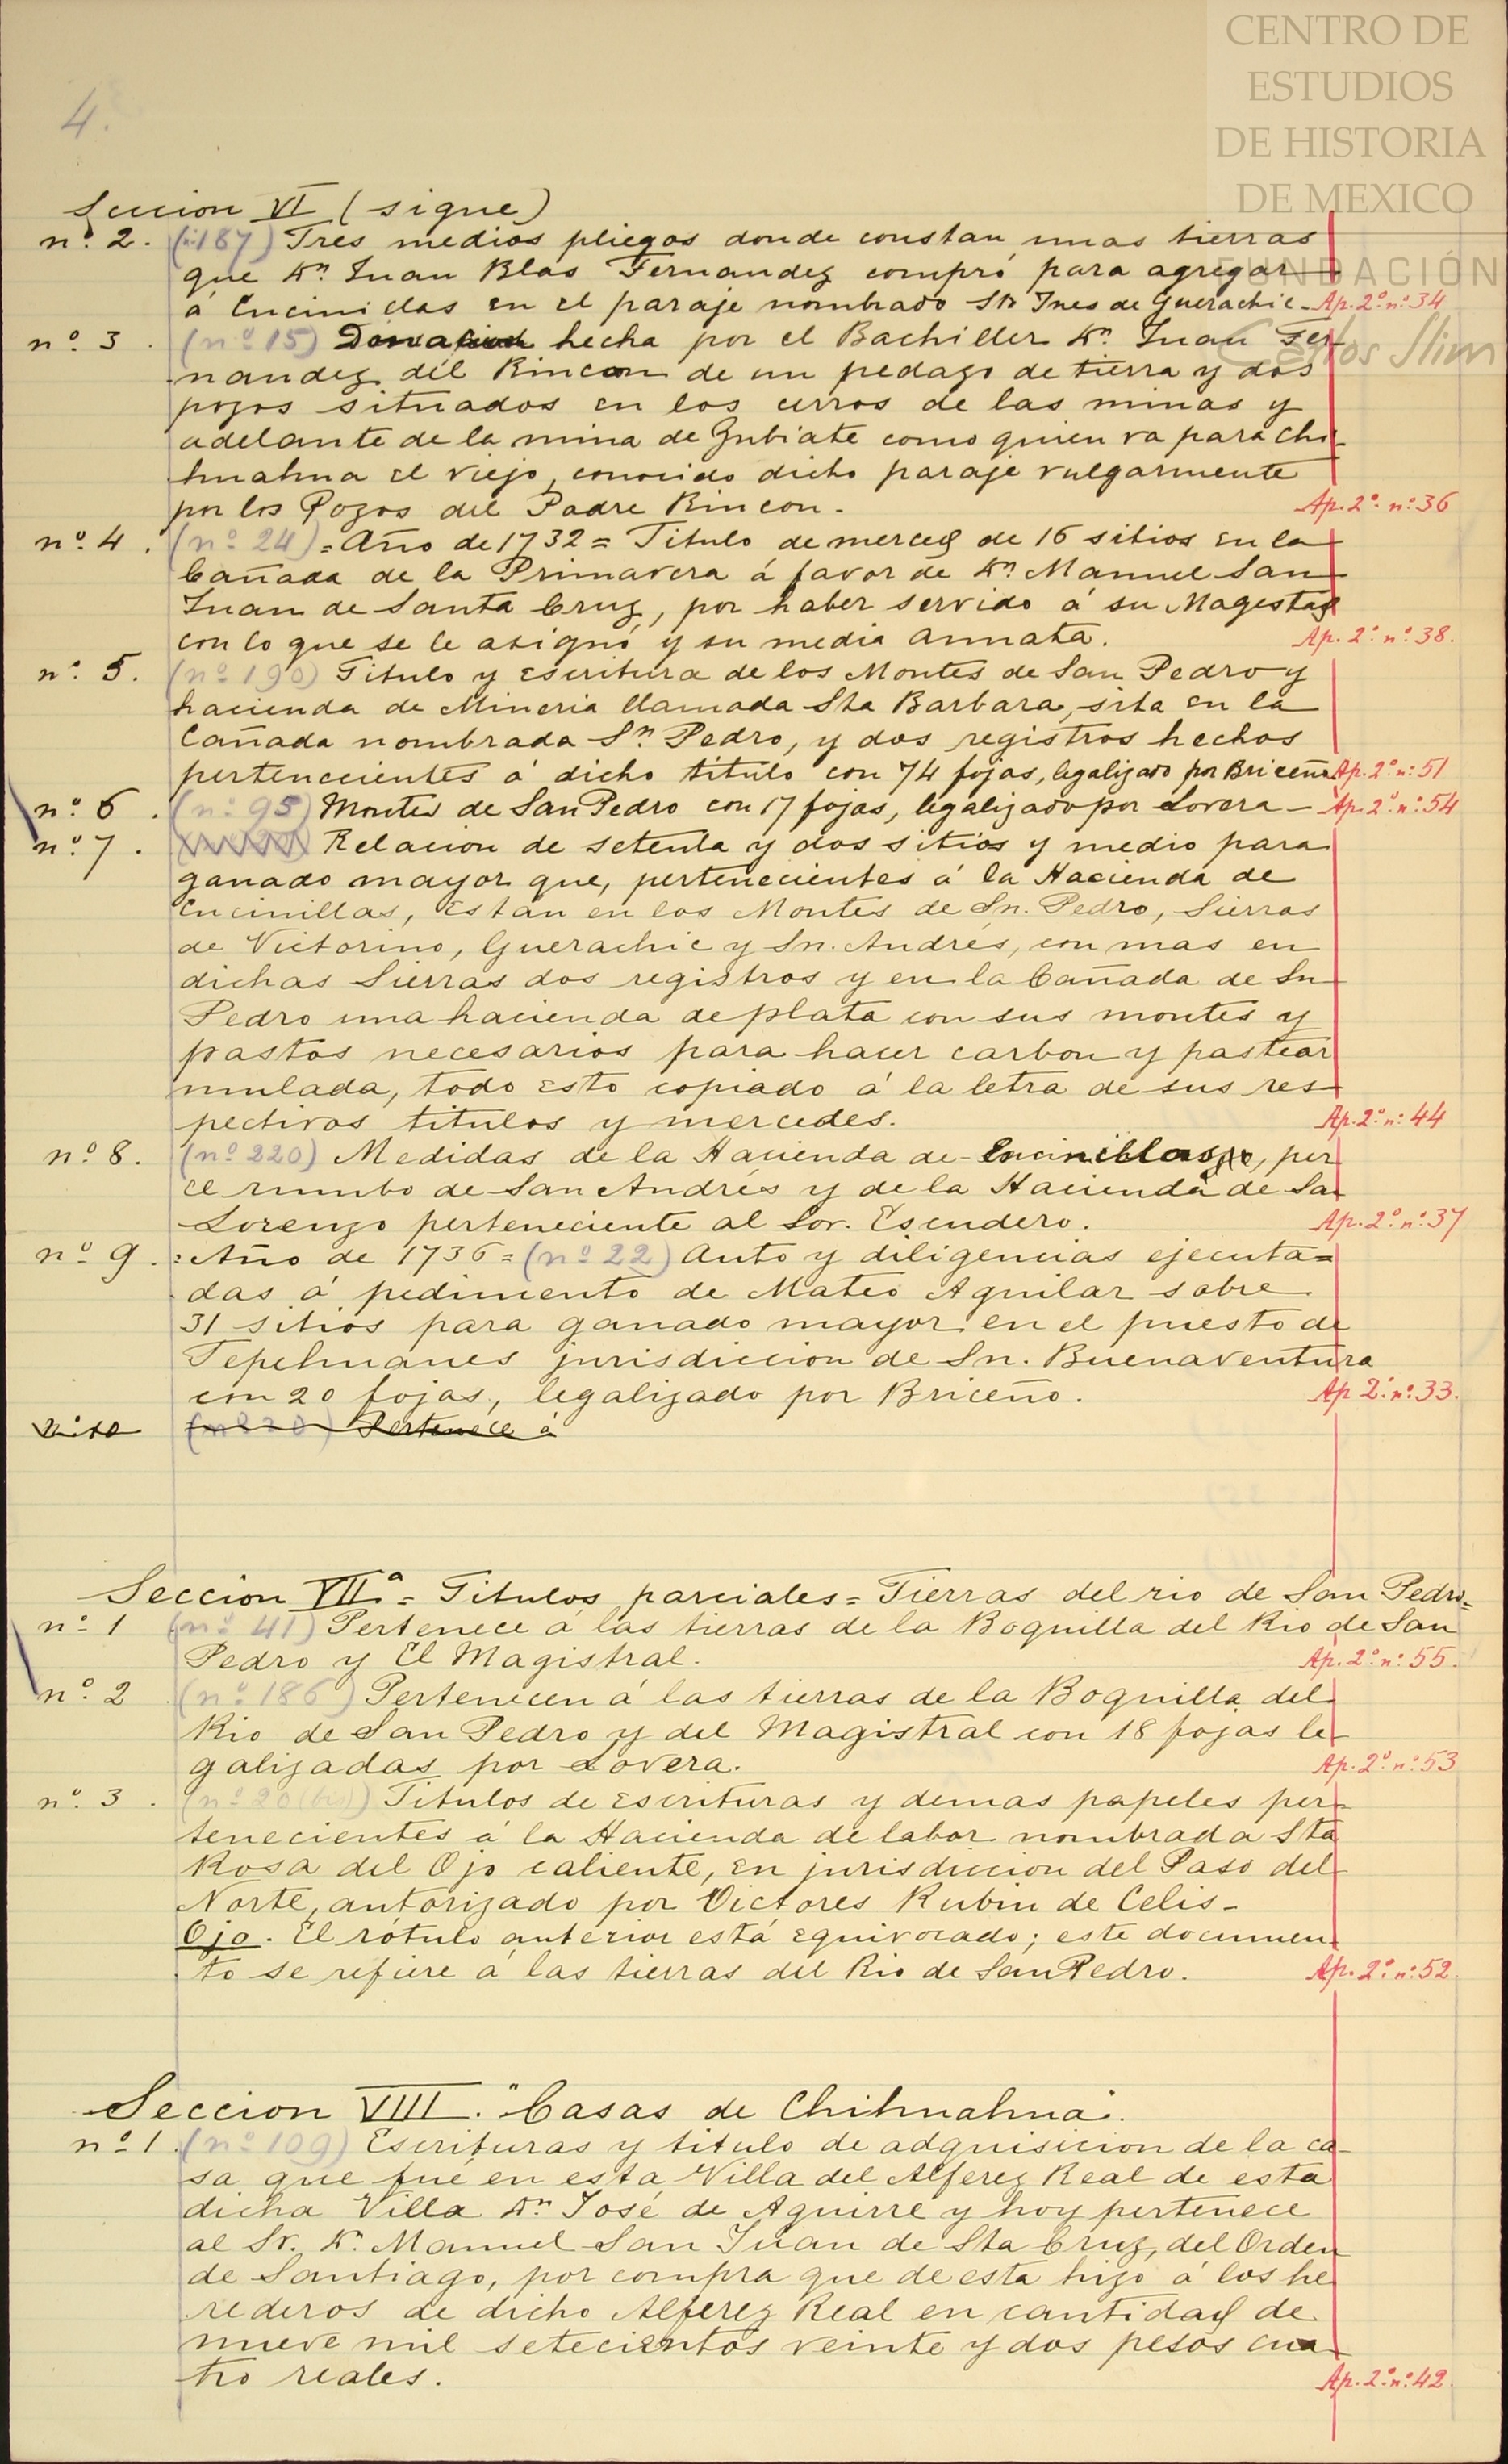 CENTRO DE
ESTUDIOS
DE HISTORIA
DE MEXICO
FUNDACIÓN
Carlos Slim
4.
Seccion VI (sigue)
nº. 2. (nº 187) Tres medios pliegos donde constan unas tierras
que Dn. Juan Blas Fernandez compró para agregar
á Encinillas en el paraje nombrado Sta Ines de Guerachic - Ap. 2º. nº. 34
nº. 3. (nº 15) Donacion hecha por el Bachiller Dn. Juan Fer-
nandez del Rincon de un pedazo de tierra y dos
pozos situados en los cerros de las minas y
adelante de la mina de Zubiate como quien va para Chi-
huahua el viejo, conocido dicho paraje vulgarmente
por los Pozos del Padre Rincon. Ap. 2º. nº. 36
nº. 4. (nº 24) = Año de 1732 = Titulo de merced de 16 sitios en la
Cañada de la Primavera á favor de Dn. Manuel San
Juan de Santa Cruz, por haber servido á su Magestad
con lo que se le asignó y su media annata. Ap. 2º. nº. 38.
nº. 5. (nº 190) Titulo y escritura de los Montes de San Pedro y
hacienda de Mineria llamada Sta Barbara, sita en la
Cañada nombrada Sn. Pedro, y dos registros hechos
pertenecientes á dicho titulo con 74 fojas, legalizado por Briceño Ap. 2º. nº. 51
nº. 6. (nº. 95) Montes de San Pedro con 17 fojas, legalizado por Lovera - Ap. 2º. nº. 54
nº. 7. Relacion de setenta y dos sitios y medio para
ganado mayor que, pertenecientes á la Hacienda de
Encinillas, están en los Montes de Sn. Pedro, Sierras
de Victorino, Guerachic y Sn. Andrés, con mas en
dichas Sierras dos registros y en la Cañada de Sn
Pedro una hacienda de plata con sus montes y
pastos necesarios para hacer carbon y pastear
mulada, todo esto copiado á la letra de sus res-
pectivos titulos y mercedes. Ap. 2º. nº. 44
nº. 8. (nº 220) Medidas de la Hacienda de Encinillas, por
el rumbo de San Andrés y de la Hacienda de San
Lorenzo perteneciente al Sor. Escudero. Ap. 2º. nº. 37
nº. 9. = Año de 1736 = (nº 22) Auto y diligencias ejecuta=
das á pedimento de Mateo Aguilar sobre
31 sitios para ganado mayor en el puesto de
Tepehuanes jurisdiccion de Sn. Buenaventura
con 20 fojas, legalizado por Briceño. Ap. 2º. nº. 33.
Pertenece á
Seccion VIIª = Titulos parciales = Tierras del rio de San Pedro=
nº. 1 (nº 41) Pertenece á las tierras de la Boquilla del Rio de San
Pedro y El Magistral. Ap. 2º. nº. 55.
nº. 2 (nº 186) Pertenecen á las tierras de la Boquilla del
Rio de San Pedro y del Magistral con 18 fojas le-
galizadas por Lovera. Ap. 2º. nº. 53
nº. 3. (nº 20 (bis)) Titulos de escrituras y demas papeles per-
tenecientes á la Hacienda de labor nombrada Sta
Rosa del Ojo caliente, en jurisdiccion del Paso del
Norte, autorizado por Victores Rubin de Celis -
Ojo. El rótulo anterior está equivocado; este documen
to se refiere á las tierras del Rio de San Pedro. Ap. 2º. nº. 52
Seccion VIII. "Casas de Chihuahua".
nº. 1. (nº 109) Escrituras y titulo de adquisicion de la ca-
sa que fué en esta Villa del Alferez Real de esta
dicha Villa Dn. José de Aguirre y hoy pertenece
al Sr. D. Manuel San Juan de Sta Cruz, del Orden
de Santiago, por compra que de esta hizo á los he
rederos de dicho Alferez Real en cantidad de
nueve mil setecientos veinte y dos pesos cua-
tro reales. Ap. 2º. nº. 42